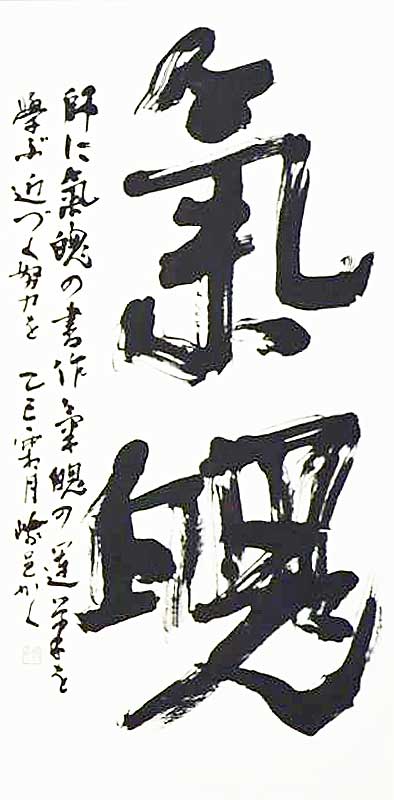 氣魄
師に氣魄の書作氣魄の運筆を
學ぶ近づく努力を 乙巳 霜月 峰邑かく